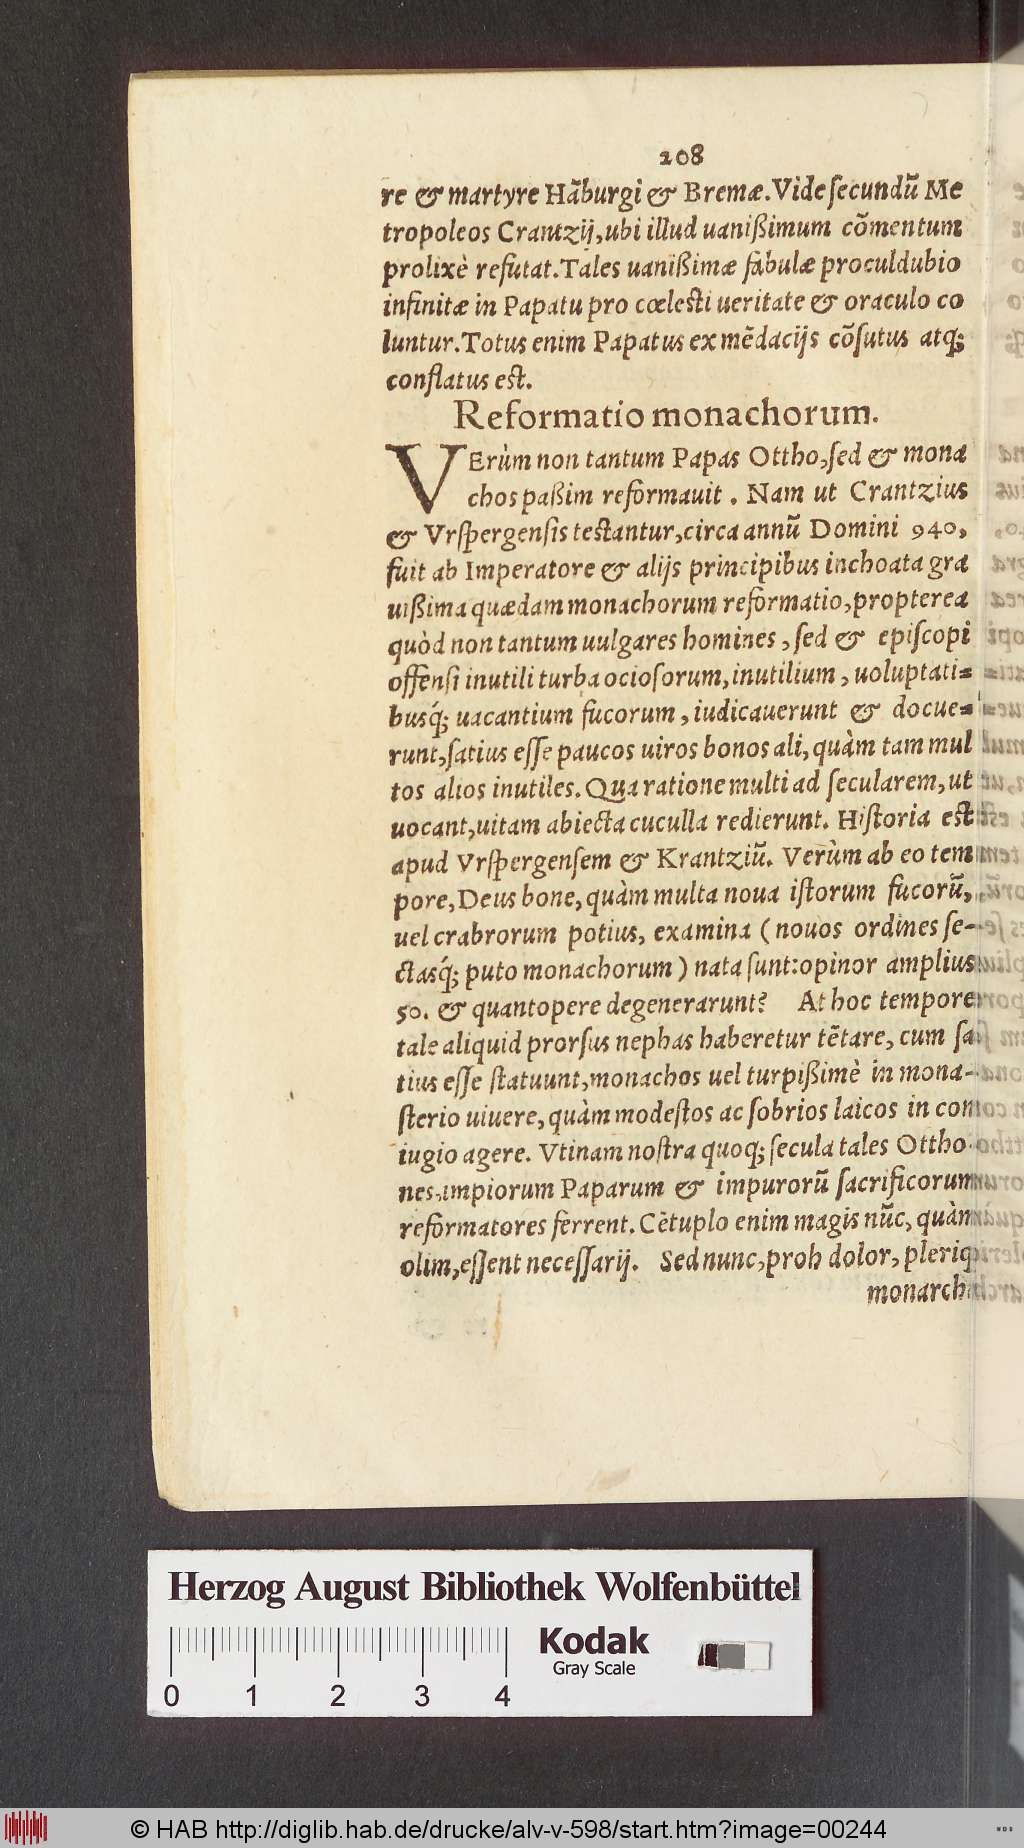 208
re & martyre Hãburgi & Bremæ. Vide ſecundũ Me
tropoleos Crantzij, ubi illud uanißimum cõmentum
prolixè refutat. Tales uanißimæ fabulæ proculdubio
infinitæ in Papatu pro cœleſti ueritate & oraculo co
luntur. Totus enim Papatus ex mẽdacijs cõſutus atq;
conflatus eſt.
Reformatio monachorum.
VErùm non tantum Papas Ottho, ſed & mona
chos paßim reformauit. Nam ut Crantzius
& Vrſpergenſis teſtantur, circa annũ Domini 940,
fuit ab Imperatore & alijs principibus inchoata gra
uißima quædam monachorum reformatio, propterea
quòd non tantum uulgares homines, ſed & epiſcopi
offenſi inutili turba ocioſorum, inutilium, uoluptati=
busq́; uacantium fucorum, iudicauerunt & docue=
runt, ſatius eſſe paucos uiros bonos ali, quàm tam mul
tos alios inutiles. Qua ratione multi ad ſecularem, ut
uocant, uitam abiecta cuculla redierunt. Hiſtoria eſt
apud Vrſpergenſem & Krantziũ. Verùm ab eo tem
pore, Deus bone, quàm multa noua iſtorum fucorũ,
uel crabrorum potius, examina (nouos ordines ſe-
ctasq́; puto monachorum) nata ſunt: opinor amplius
50. & quantopere degenerarunt? At hoc tempore
tale aliquid prorſus nephas haberetur tẽtare, cum ſa
tius eſſe ſtatuunt, monachos uel turpißimè in mona-
ſterio uiuere, quàm modeſtos ac ſobrios laicos in con
iugio agere. Vtinam noſtra quoq; ſecula tales Ottho
nes, impiorum Paparum & impurorũ ſacrificorum
reformatores ferrent. Cẽtuplo enim magis nũc, quàm
olim, eſſent neceſſarij. Sed nunc, proh dolor, pleriq
monarch
Herzog August Bibliothek Wolfenbüttel
Kodak
Gray Scale
0 1 2 3 4
© HAB http://diglib.hab.de/drucke/alv-v-598/start.htm?image=00244